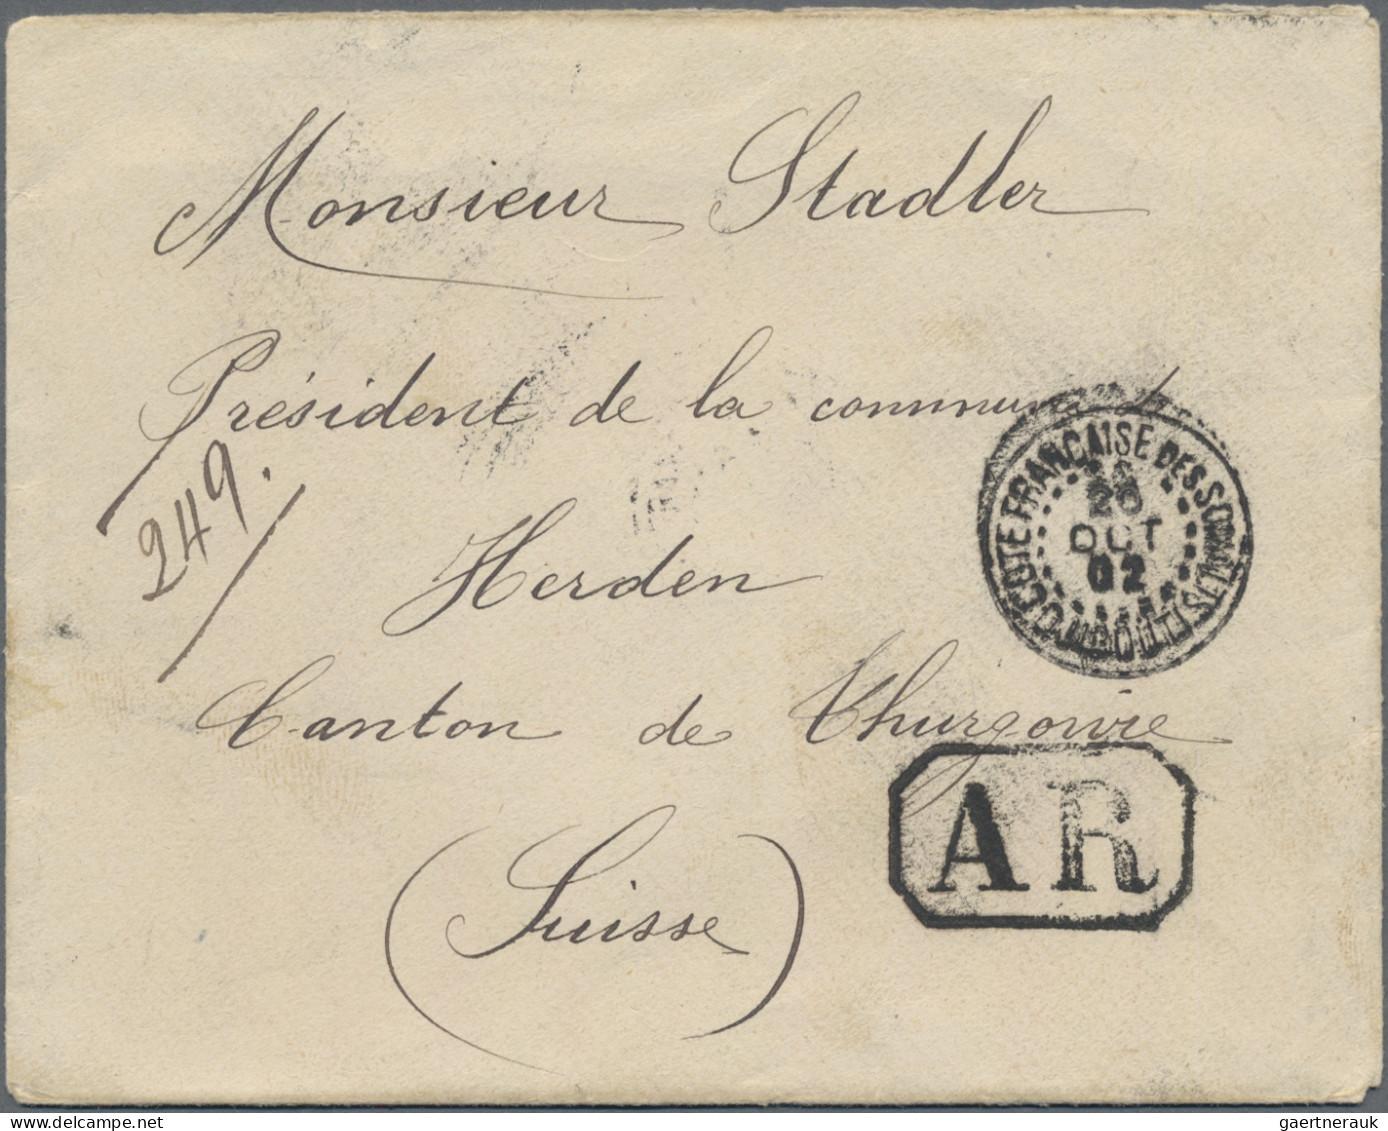 Monsieur Stadler
Président de la commune de
249.
Herden
Canton de Thurgovie
(Suisse)
COTE FRANÇAISE DES SOMALIS
DJIBOUTI
20
OCT
02
AR
gaertnerauk
delcampe.net